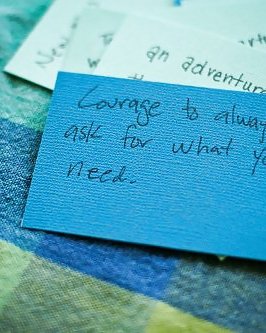 an adventur
Courage to alway
ask for what yo
need.